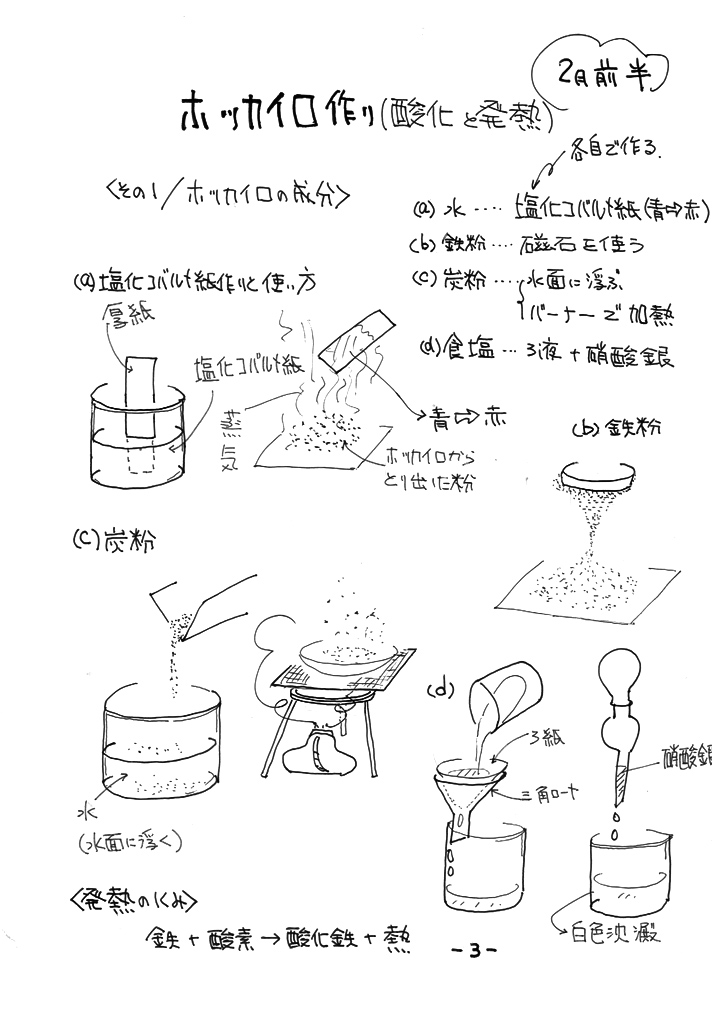 2月前半
ホッカイロ作り(酸化と発熱)
各自で作る.
<その1/ホッカイロの成分>
(a) 水 ···· 塩化コバルト紙(青⇨赤)
(b) 鉄粉 ···· 磁石を使う
(c) 炭粉 ···· 水面に浮ぶ
バーナーで加熱
(d) 食塩 ··· ろ液 + 硝酸銀
(a)塩化コバルト紙作りと使い方
厚紙
塩化コバルト紙
蒸気
青⇨赤
ホッカイロから
とり出した粉
(b) 鉄粉
(c) 炭粉
水
(水面に浮く)
(d)
ろ紙
三角ロート
硝酸銀
白色沈澱
<発熱のしくみ>
鉄 + 酸素 → 酸化鉄 + 熱
-3-